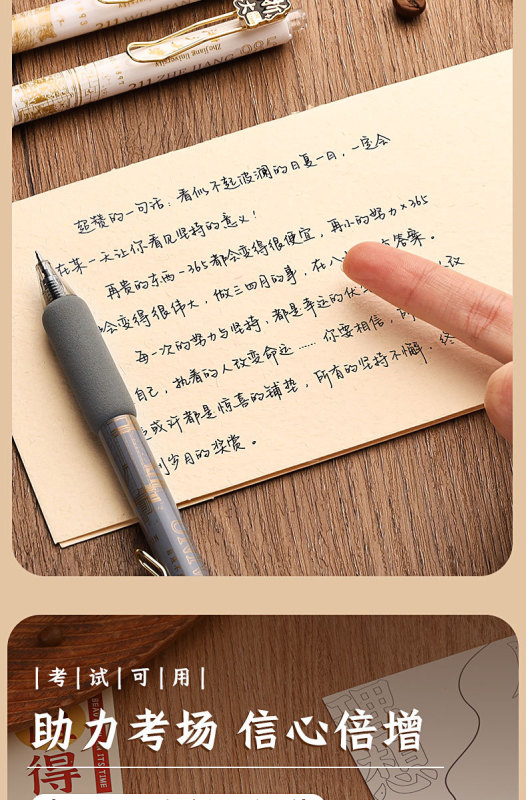 Zhe Jiang University
311 ZHE JIANG
超赞的一句话:看似不起波澜的日复一日,一定会
在某一天让你看见坚持的意义!
再贵的东西-365都会变得很便宜,再小的努力×365
会变得很伟大,做三四月的事,在八 答案。
每一次的努力与坚持,都是幸运的伏 改
自己,执着的人改变命运……你要相信,
或许都是惊喜的铺垫,所有的坚持不懈,终
到岁月的奖赏。
考试可用
助力考场 信心倍增
得
理想